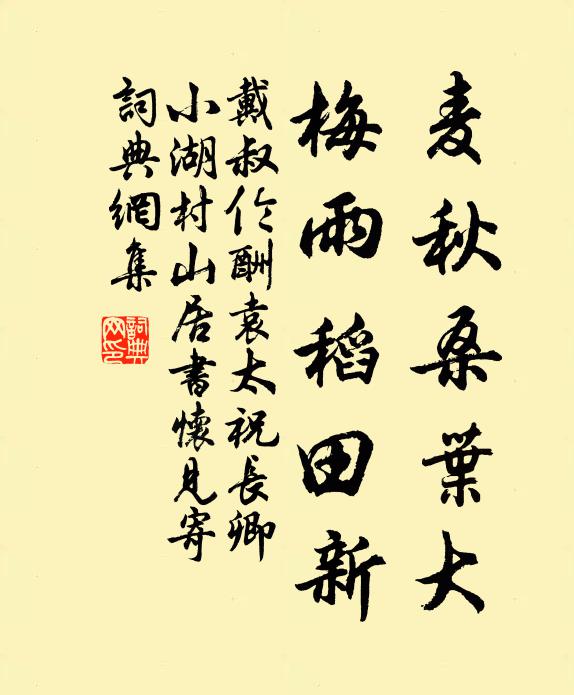 麦秋桑葉大
梅雨稻田新
戴叔伦酬袁太祝長卿
小湖村山居書懷見寄
詞典網集
詞典网印